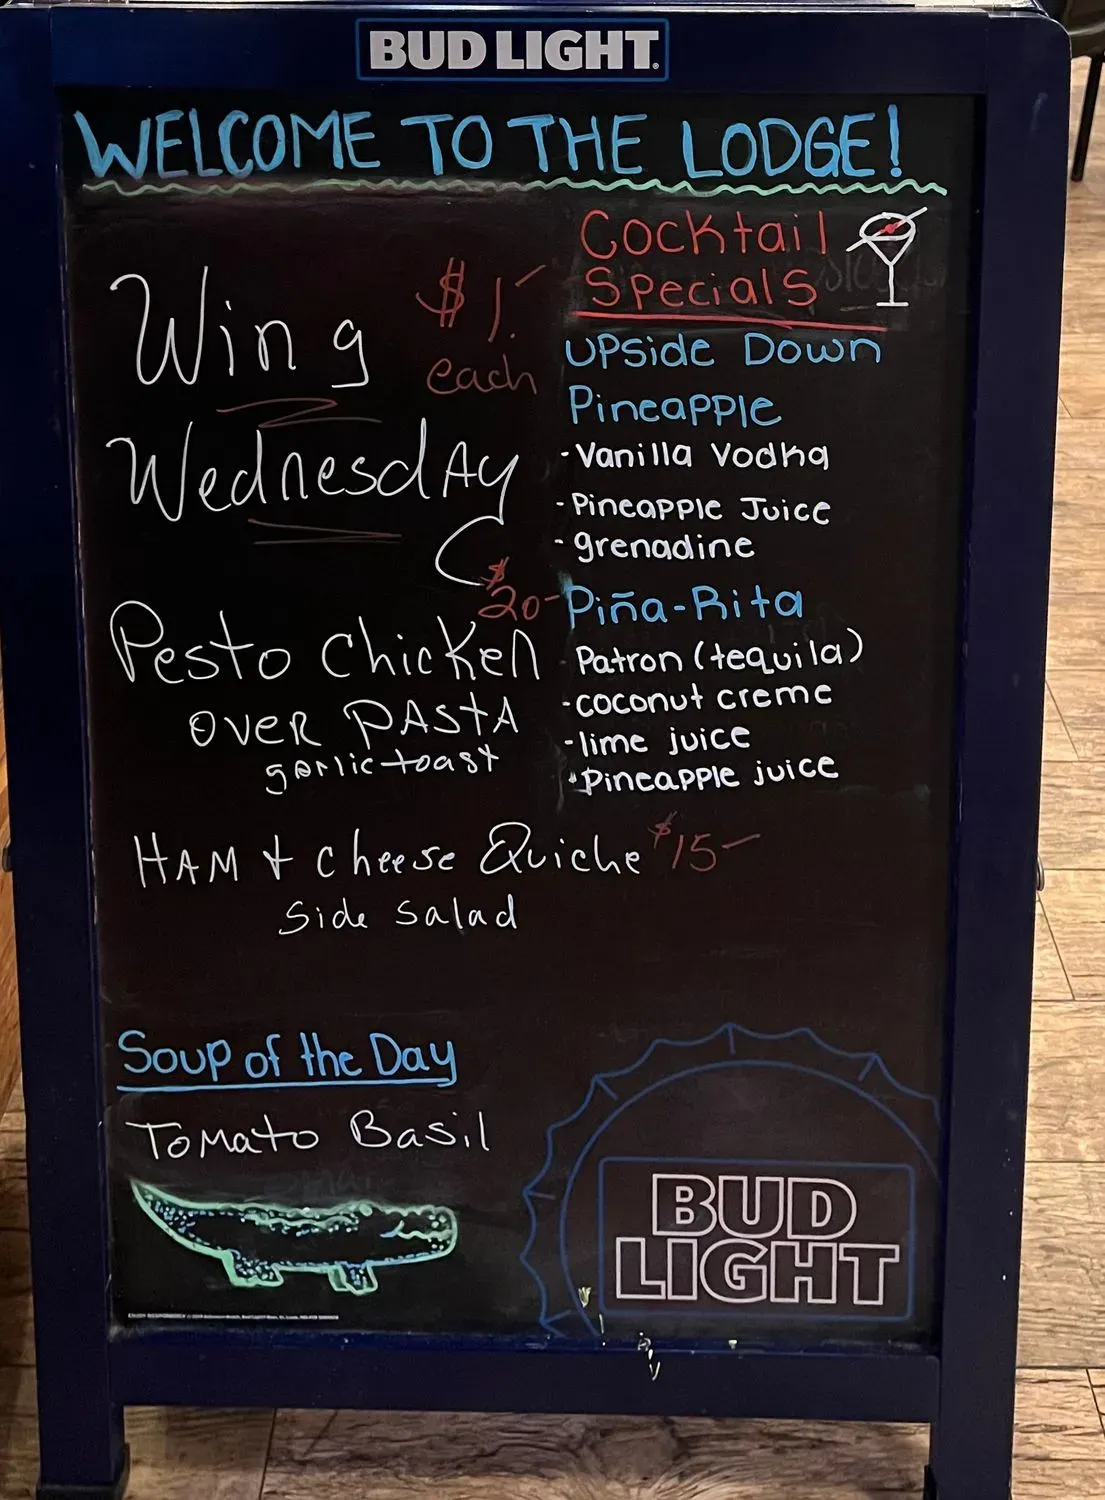 BUD LIGHT
WELCOME TO THE LODGE!
Wing $1.-
each
Wednesday
$20-
Pesto Chicken
over PASTA
garlic toast
HAM + Cheese Quiche $15-
Side Salad
Cocktail
Specials
Upside Down
Pineapple
-Vanilla Vodka
-Pineapple Juice
-grenadine
Piña-Rita
-Patron (tequila)
-coconut creme
-lime juice
-Pineapple juice
Soup of the Day
Tomato Basil
BUD
LIGHT